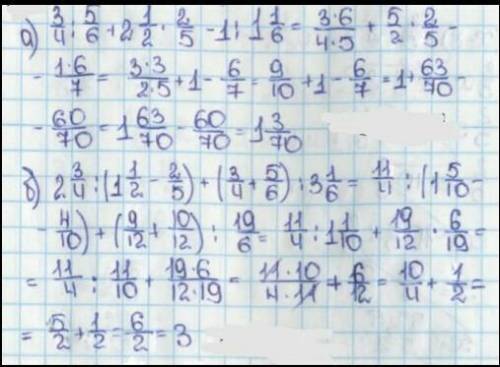 а) 3/4 : 5/6 + 2 1/2 · 2/5 - 1 : 1 1/6 = 3·6/4·5 + 5/2 · 2/5 -
- 1·6/7 = 3·3/2·5 + 1 - 6/7 = 9/10 + 1 - 6/7 = 1 + 63/70 -
- 60/70 = 1 63/70 - 60/70 = 1 3/70
б) 2 3/4 : (1 1/2 - 2/5) + (3/4 + 5/6) : 3 1/6 = 11/4 : (1 5/10 -
- 4/10) + (9/12 + 10/12) : 19/6 = 11/4 : 1 1/10 + 19/12 · 6/19 =
= 11/4 : 11/10 + 19·6/12·19 = 11·10/4·11 + 6/12 = 10/4 + 1/2 =
= 5/2 + 1/2 = 6/2 = 3